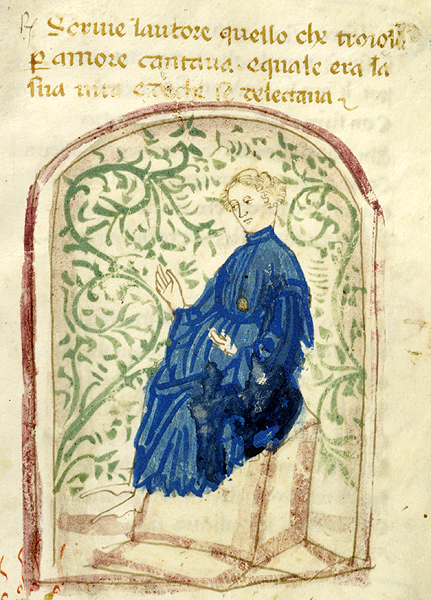 Scriue lautore quello che troiolo
p amore cantaua. equale era la
sua uita et di che se delectaua